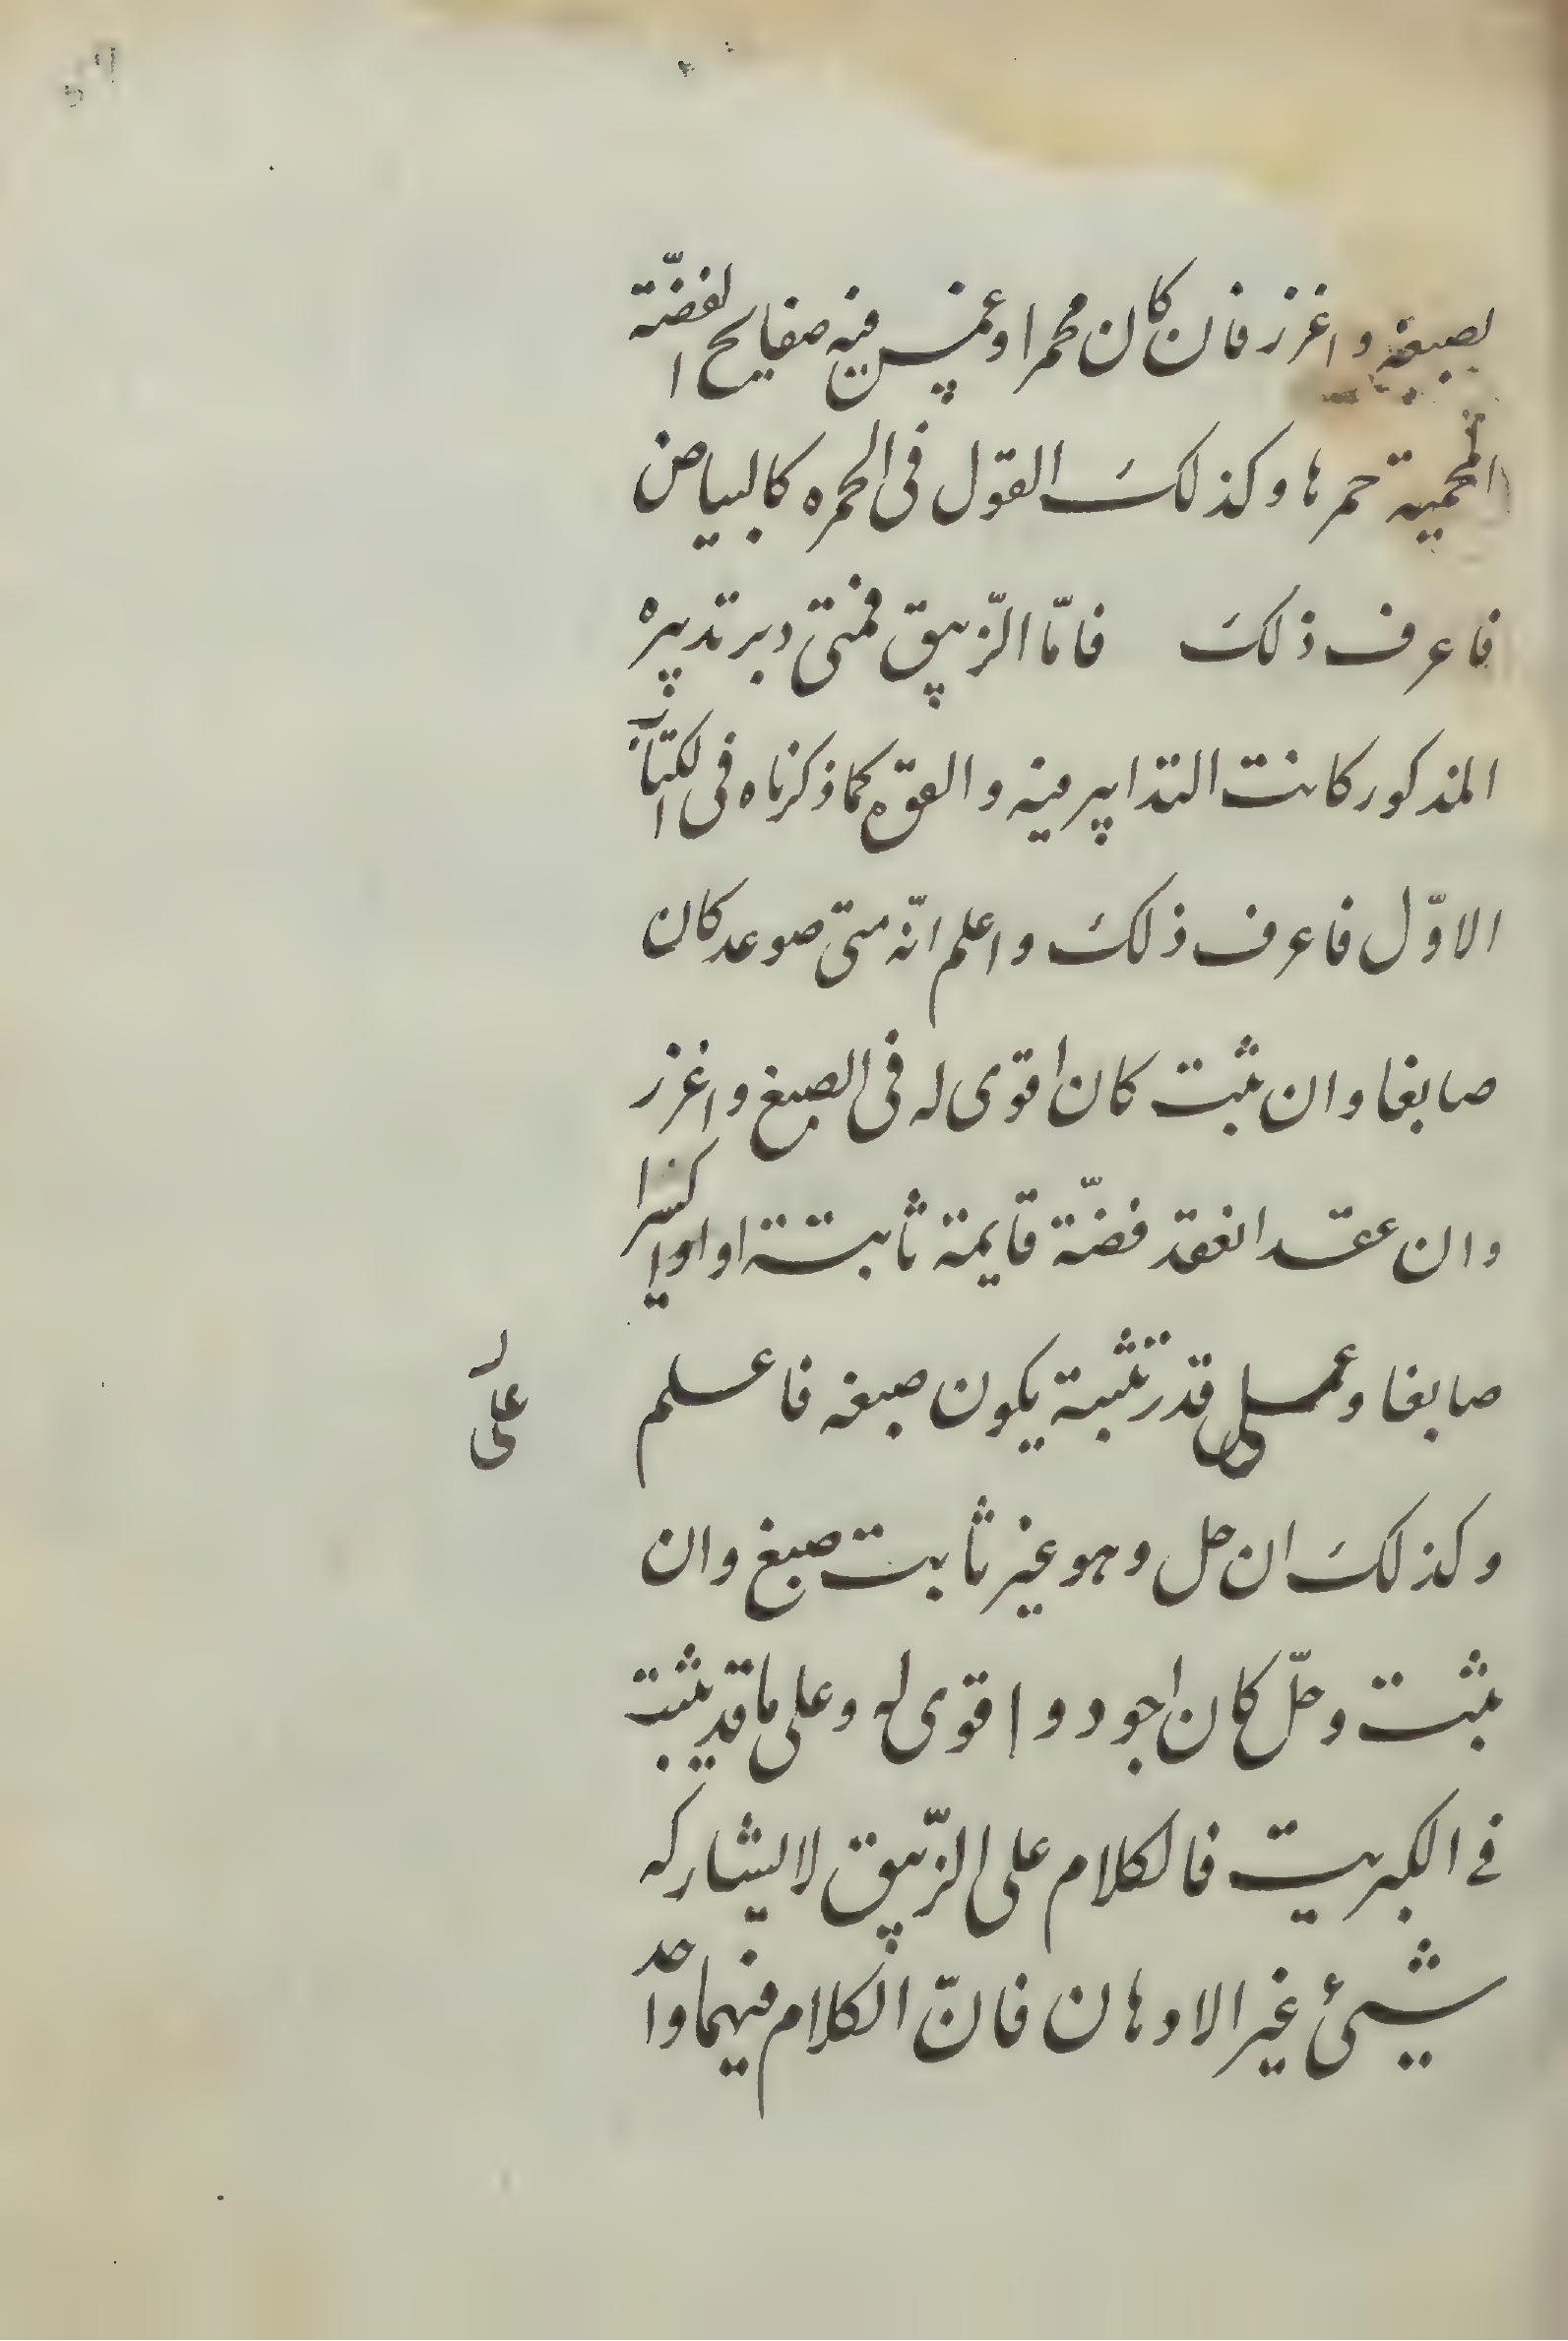 لصبغه واغزر فان كان محمرا وغمس فيه صفايح الفضّة
المحمية حمرها وكذلك القول فى الحمره كالبياض
فاعرف ذلك فامّا الزّيبق فمتى دبر تدبيره
المذكور كانت التدابير فيه والقوّه كما ذكرناه فى الكتاب
الاوّل فاعرف ذلك واعلم انّه متى صوعد كان
صابغا وان ثبت كان اقوى له فى الصبغ واغزر
وان عقد انعقد فضّة قايمة ثابتة او اكسيرا
صابغا وعلى قدر تثبته يكون صبغه فاعلم
على
وكذلك ان حل وهو غير ثابت صبغ وان
ثبت وحلّ كان اجود واقوى له وعلى ما قد يثبت
فى الكبريت فالكلام على الزّيبق لا يشاركه
شيئ غير الادهان فانّ الكلام فيهما واحد